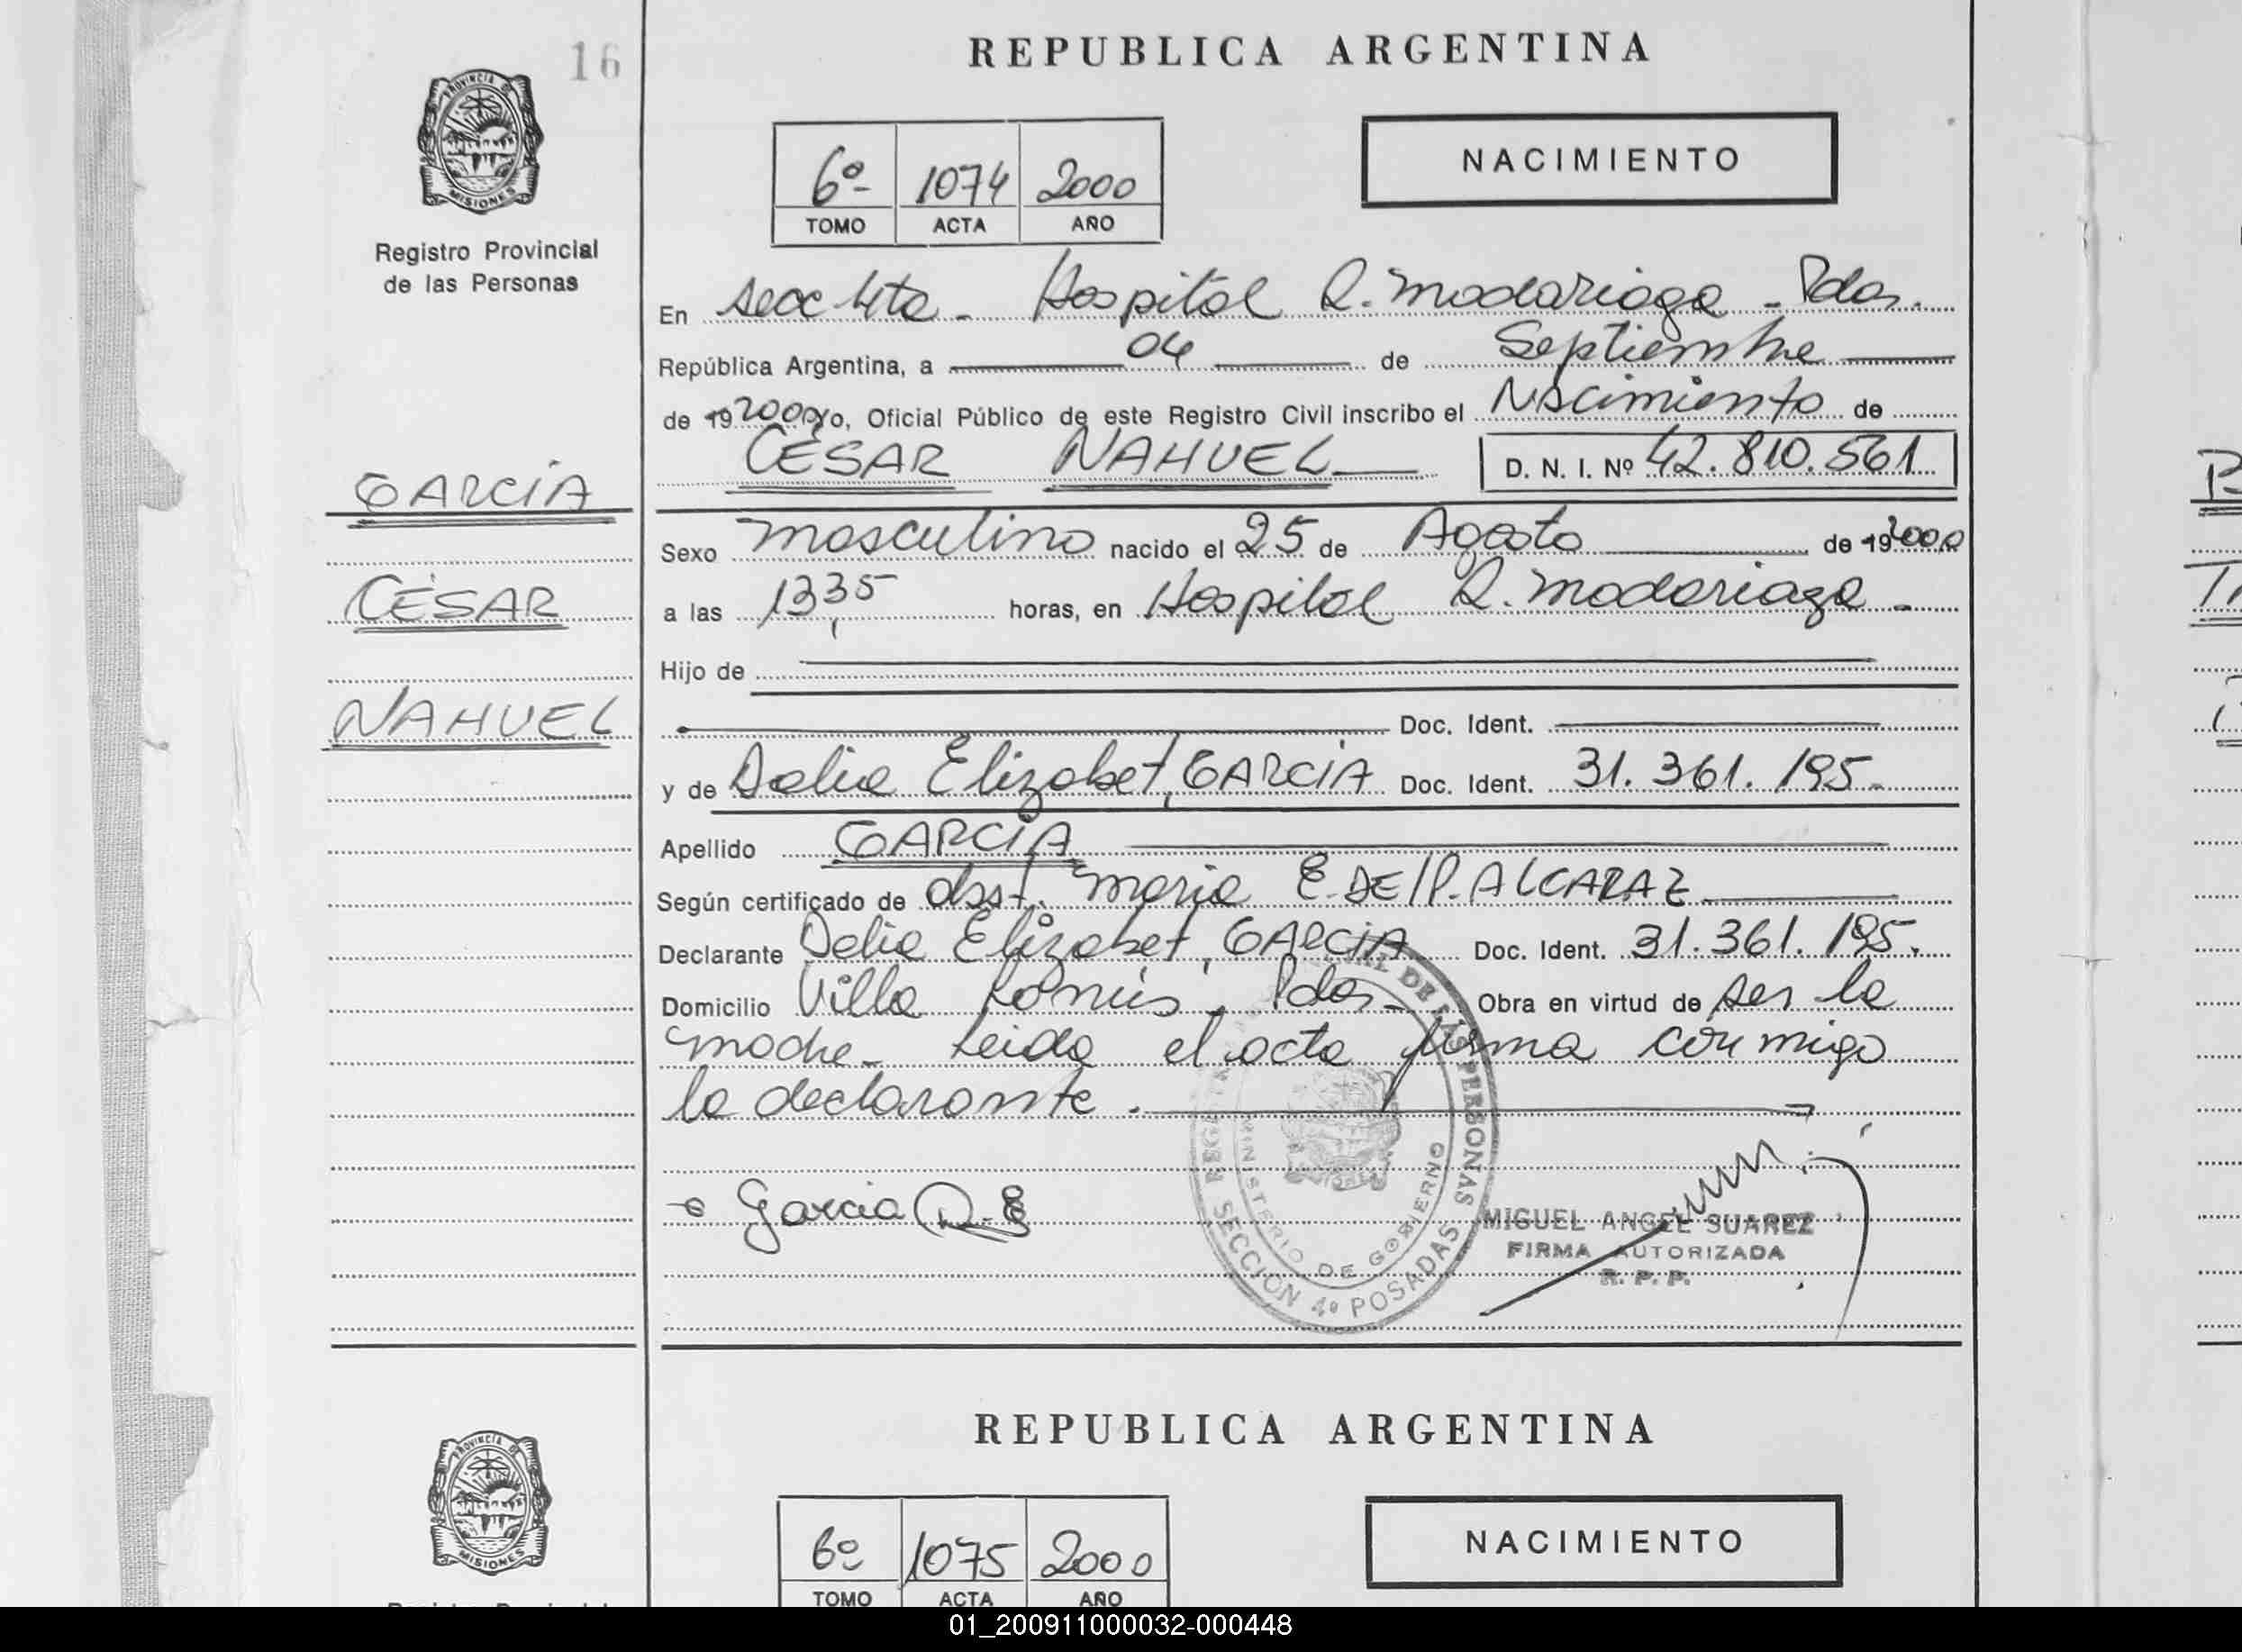 16
REPUBLICA ARGENTINA
PROVINCIA DE MISIONES
Registro Provincial
de las Personas
6º 1074 2000
TOMO ACTA AÑO
NACIMIENTO
En Secc 4ta. Hospital R. Madariaga - Pdas.
República Argentina, a 04 de Septiembre
de 19 2000 yo, Oficial Público de este Registro Civil inscribo el Nacimiento de
CÉSAR NAHUEL D. N. I. Nº 42.810.561
GARCÍA
Sexo masculino nacido el 25 de Agosto de 19 2000
CÉSAR
a las 13,35 horas, en Hospital R. Madariaga -
Hijo de
NAHUEL
Doc. Ident.
y de Delia Elizabet, GARCÍA Doc. Ident. 31.361.195.
Apellido GARCÍA
Según certificado de obst. Maria E. DE P. ALCARAZ
Declarante Delia Elizabet, GARCÍA Doc. Ident. 31.361.195.
Domicilio Villa Lanús, Pdas- Obra en virtud de ser la
madre - Leida el acta firma conmigo
la declarante.
DE LAS PERSONAS
MINISTERIO DE GOBIERNO
SECCION 4º POSADAS
Garcia D. E
MIGUEL ANGEL SUAREZ
FIRMA AUTORIZADA
R. P. P.
REPUBLICA ARGENTINA
PROVINCIA DE MISIONES
6º 1075 2000
TOMO ACTA AÑO
NACIMIENTO
01_200911000032-000448